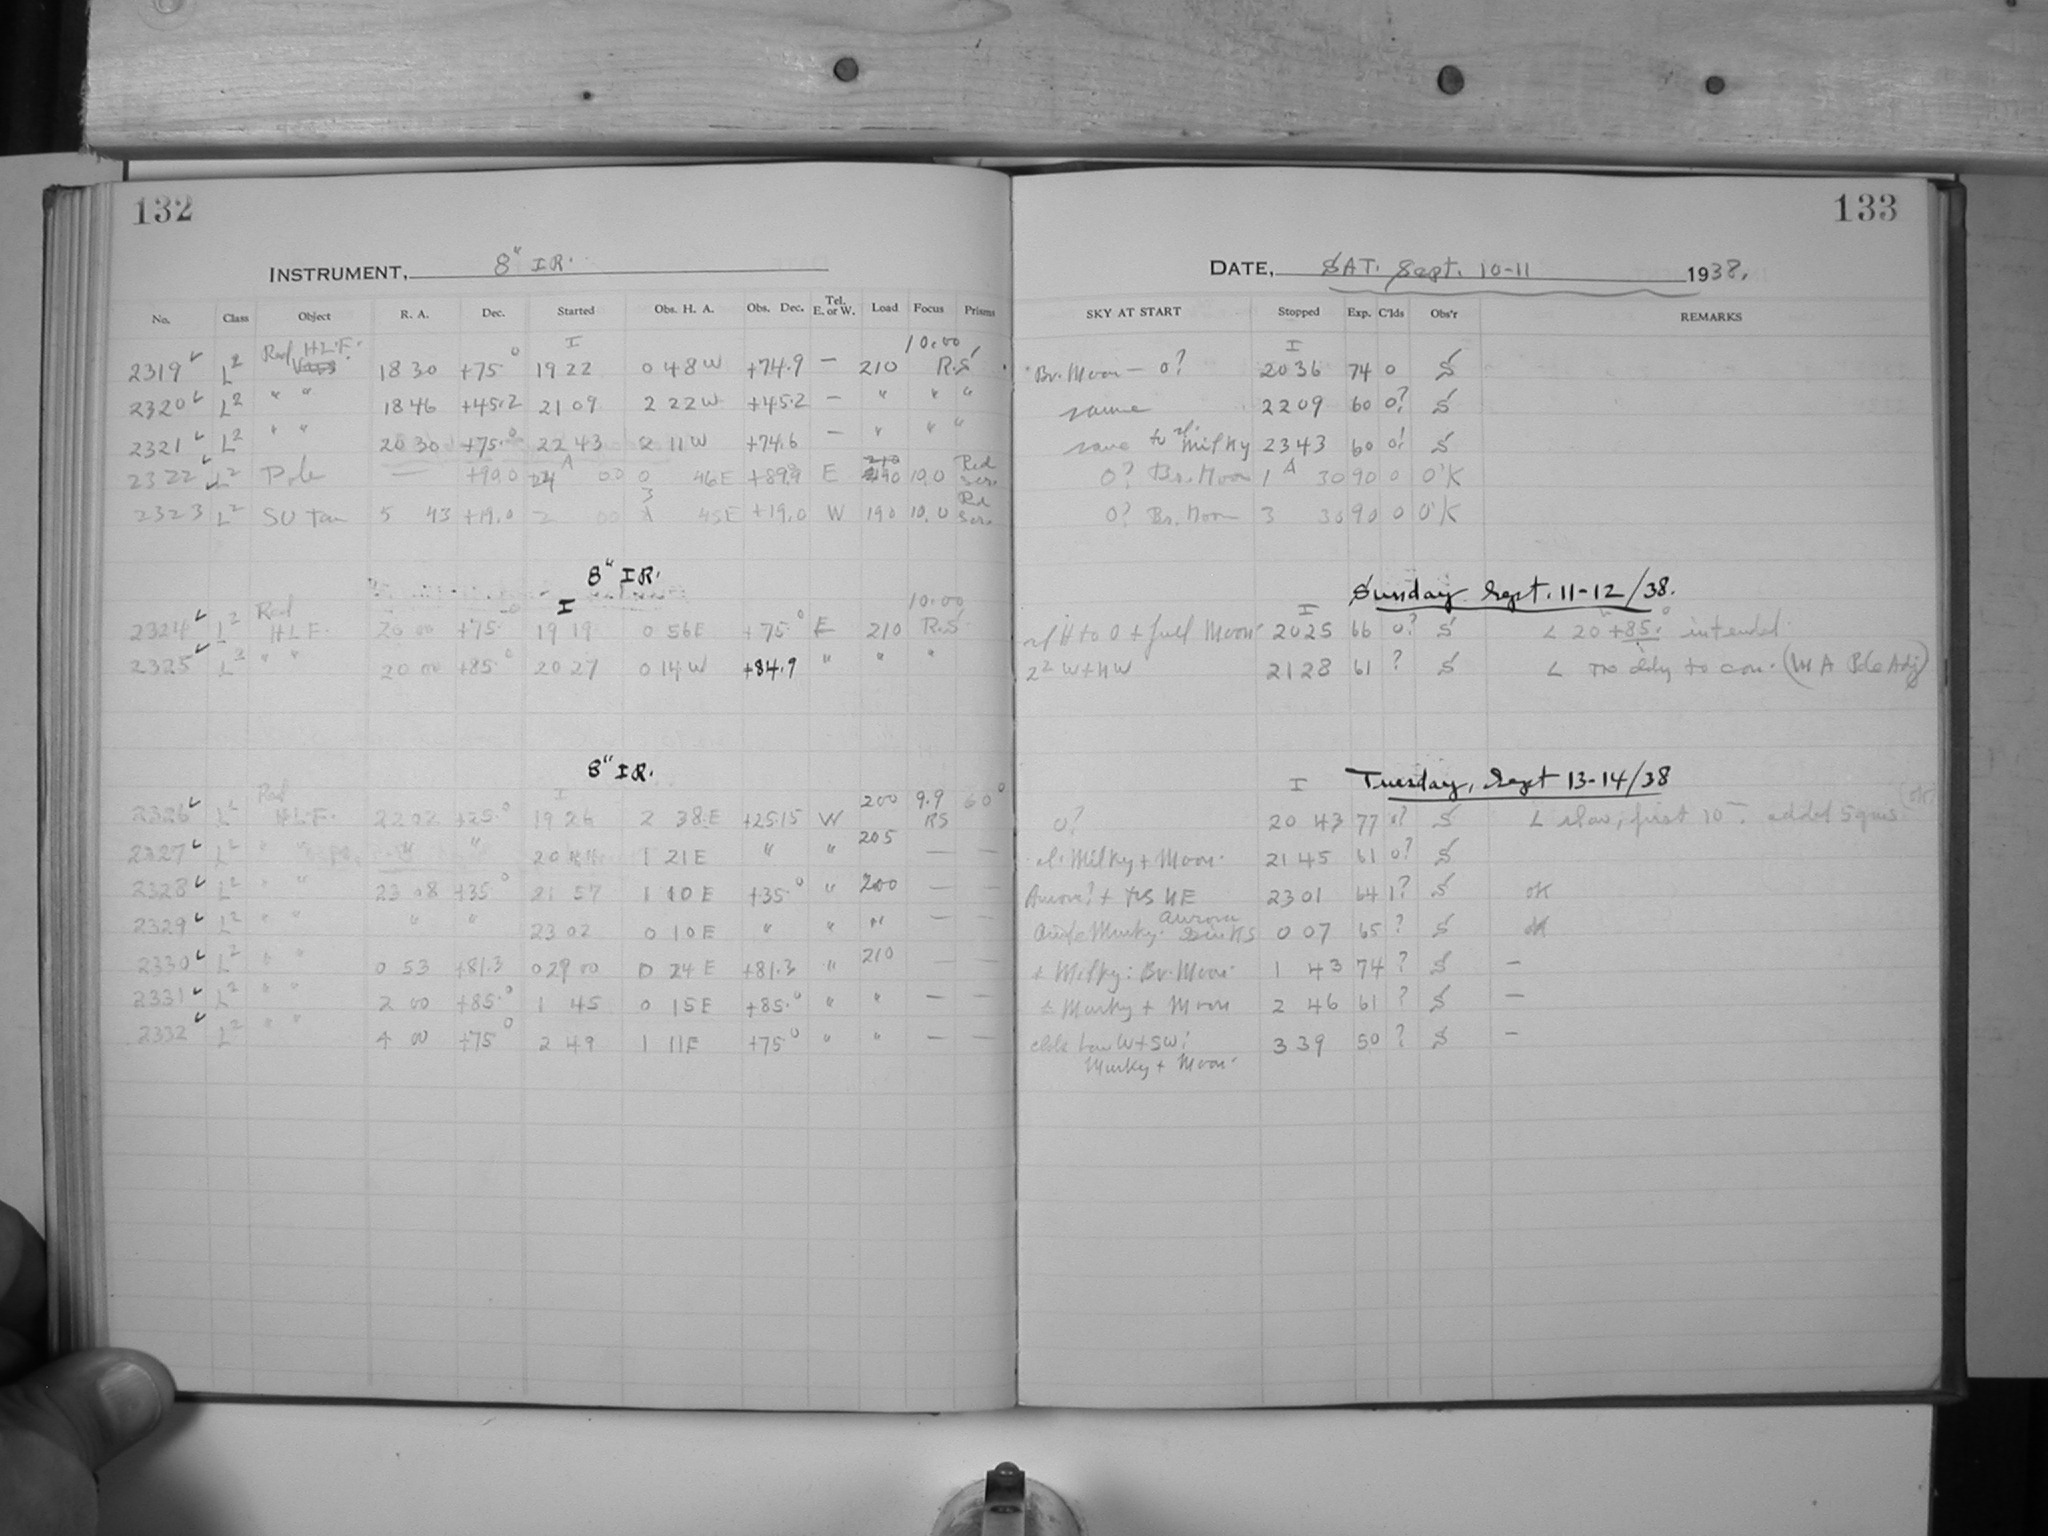 132
133
INSTRUMENT, 8" IR.
DATE, SAT. Sept. 10-11 1938.
No. Class Object R. A. Dec. Started Obs. H. A. Obs. Dec. Tel. E. or W. Load Focus Prisms SKY AT START Stopped Exp. C'lds Obs'r REMARKS
I 10.00 I
2319 L2 Red H.L.F. 18 30 +75° 19 22 0 48 W +74.9 — 210 R.S. Br. Moon — 0? 20 36 74 0 S
2320 L2 " " 18 46 +45.2 21 09 2 22 W +45.2 — " " " same 22 09 60 0? S
2321 L2 " " 20 30 +75.° 22 43 2 11 W +74.6 — " " " same to Milky 23 43 60 S
2322 L2 Pole — +90.0 A 00 0 46 E +89.9 E 10.0 Red Scr. 0? Br. Moon 1 A 30 90 0 O'K
2323 L2 SU Tau 5 43 +19.0 2 00 3 45 E +19.0 W 190 10.0 Rd Scr. 0? Br. Moon 3 30 90 0 O'K
8" IR. Sunday Sept. 11-12/38.
I 10.00 I
2324 L2 Red H.L.F. 20 00 +75 19 19 0 56 E +75.° E 210 R.S. H to 0 + full Moon 20 25 66 0? S L 20 +85.° intended.
2325 L2 " " 20 00 +85.° 20 27 0 14 W +84.9 " " " W + NW 21 28 61 ? S L to con. (W A Pole Adj)
8" IR. Tuesday, Sept 13-14/38
I I
2326 L2 Red H.L.F. 22 02 +25.° 19 26 2 38 E +25.15 W 200 9.9 RS 60° 0? 20 43 77 S L slow, first 10 added 5
2327 L2 " " " " 20 44 1 21 E " " 205 — — Milky + Moon. 21 45 61 0? S
2328 L2 " " 23 08 +35.° 21 57 1 10 E +35.° " 200 — — Aurora? + NE 23 01 64 1? S OK
2329 L2 " " " " 23 02 0 10 E " " " — — Murky. aurora 0 07 65 ? S OK
2330 L2 " " 0 53 +81.3 0 29 00 0 24 E +81.3 " 210 — — + Milky: Br. Moon 1 43 74 ? S —
2331 L2 " " 2 00 +85.° 1 45 0 15 E +85.° " " — — Murky + Moon 2 46 61 ? S —
2332 L2 " " 4 00 +75° 2 49 1 11 E +75° " " — — clds low W + SW; 3 39 50 ? S —
Murky + Moon.